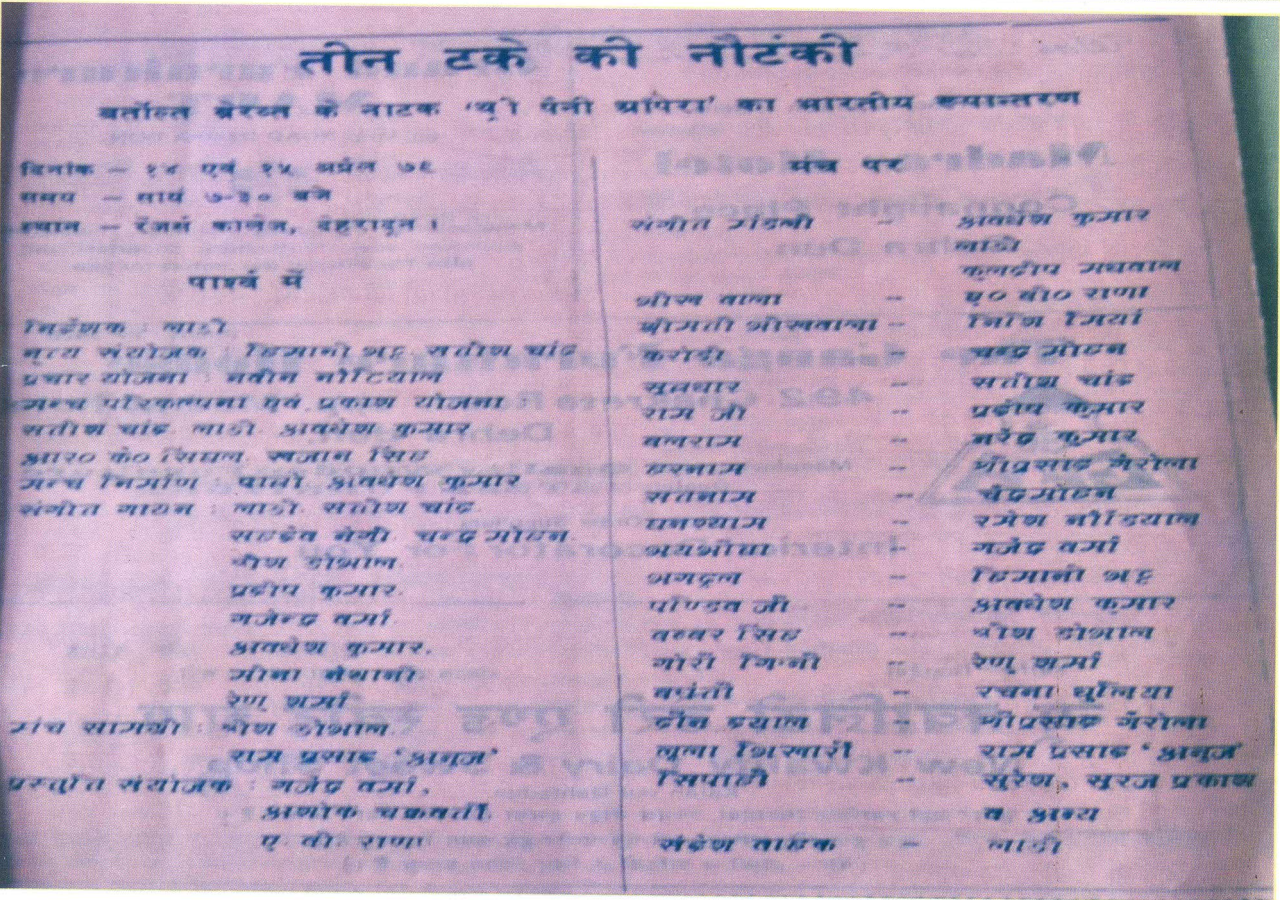 तीन टके की नौटंकी
बर्तोल्त ब्रेख्त के नाटक 'थ्री पैनी ऑपेरा' का भारतीय रूपान्तरण
दिनांक – १४ एवं १५ अप्रैल ७६
समय – सायं ७-३० बजे
स्थान – रेंजर्स कालेज, देहरादून ।
पार्श्व में
निर्देशक : लाडी
नृत्य संयोजक : हिमानी भट्ट, सतीश चांद
प्रचार योजना : नवीन नौटियाल
मन्च परिकल्पना एवं प्रकाश योजना
सतीश चांद, लाडी, अवधेश कुमार
आर० के० सिंघल, खजान सिंह
मन्च निर्माण : पासो, अवधेश कुमार
संगीत गायन : लाडी, सतीश चांद,
सहदेव नेगी, चन्द्र मोहन,
श्रीश डोभाल,
प्रदीप कुमार,
गजेन्द्र वर्मा,
अवधेश कुमार,
मीना नैथानी
रेणु शर्मा
मंच सामग्री : श्रीश डोभाल,
राम प्रसाद 'अनुज'
प्रस्तुति संयोजक : गजेंद्र वर्मा,
अशोक चक्रवर्ती,
ए वी राणा
मंच पर
संगीत मंडली – अवधेश कुमार
लाडी
कुलदीप गधवाल
भीख वाला – ए० वी० राणा
श्रीमती भीखवाला – निशि मियां
करोंदी चन्द्र मोहन
सूत्रधार – सतीश चांद
राम जी – प्रदीप कुमार
बलराम – नरेंद्र कुमार
हरनाम – श्रीप्रसाद गैरोला
सतनाम – चंद्रमोहन
घनश्याम – रमेश नौडियाल
– गजेंद्र वर्मा
– हिमानी भट्ट
पाण्डव जी – अवधेश कुमार
बब्बर सिंह – श्रीश डोभाल
गोरी गिन्नी – रेणु शर्मा
बसंती – रचना धूलिया
दीन दयाल – श्रीप्रसाद गैरोला
लूला भिखारी – राम प्रसाद 'अनुज'
सिपाही – सुरेश, सूरज प्रकाश
व अन्य
संदेश वाहक – लाडी